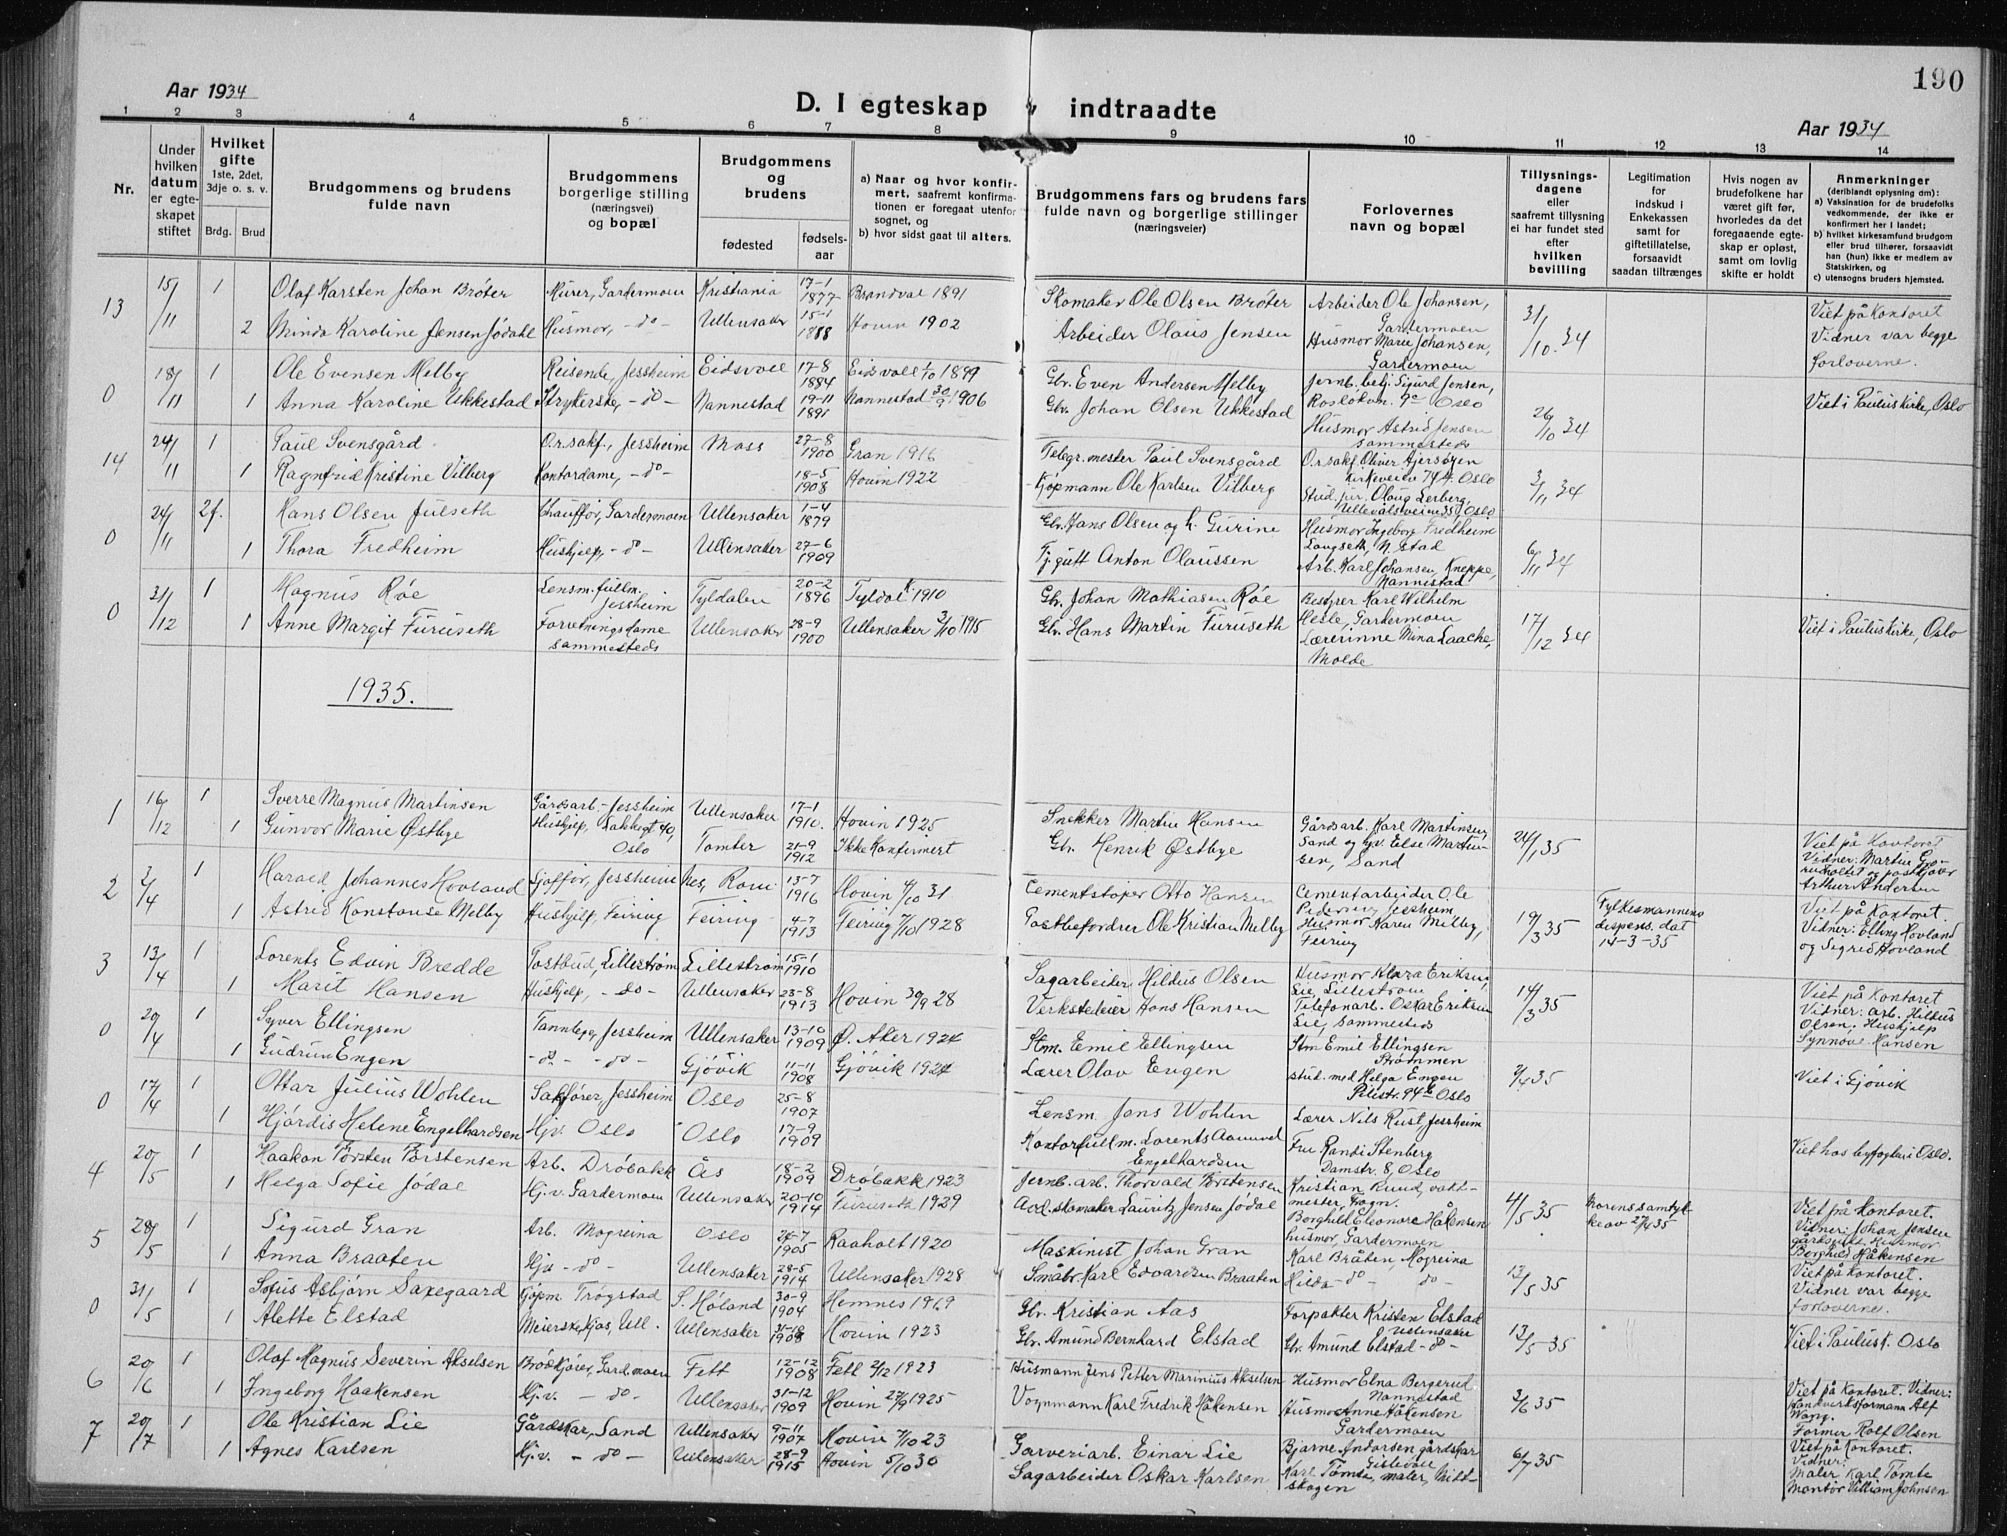 190
Aar 1934
D. I egteskap indtraadte
Aar 1934
1 2 3 4 5 6 7 8 9 10 11 12 13 14
Nr.
Under hvilken datum er egteskapet stiftet
Hvilket gifte 1ste, 2det, 3dje o. s. v.
Brdg. Brud
Brudgommens og brudens fulde navn
Brudgommens borgerlige stilling (næringsvei) og bopæl
Brudgommens og brudens
fødested
fødselsaar
a) Naar og hvor konfirmert, saafremt konfirmationen er foregaat utenfor sognet, og
b) hvor sidst gaat til alters.
Brudgommens fars og brudens fars fulde navn og borgerlige stillinger (næringsveier)
Forlovernes navn og bopæl
Tillysningsdagene eller saafremt tillysning ei har fundet sted efter hvilken bevilling
Legitimation for indskud i Enkekassen samt for giftetillatelse, forsaavidt saadan tiltrænges
Hvis nogen av brudefolkene har været gift før, hvorledes da det foregaaende egteskap er opløst, samt om lovlig skifte er holdt
Anmerkninger (deriblandt oplysning om):
a) Vaksination for de brudefolks vedkommende, der ikke er konfirmert her i landet;
b) hvilket kirkesamfund brudgom eller brud tilhører, forsaavidt han (hun) ikke er medlem av Statskirken, og
c) utensogns bruders hjemsted.
13 15/11 1 Olaf Karsten Johan Brøter Murer, Gardermoen Kristiania 17-1 1877 Brandval 1891 Skomaker Ole Olsen Brøter Arbeider Ole Johansen, Gardermoen 31/10.34 Viet på Kontoret
2 Minda Karoline Jensen Jødahl Husmor, -do- Ullensaker 15-1 1888 Hovin 1902 Arbeider Olaus Jensen Husmor Marie Johansen, Gardermoen Vidner var begge forloverne.
0 18/11 1 Ole Evensen Melby Reisende, Jessheim Eidsvoll 17-8 1884 Eidsvoll 1/10 1899 Gbr. Even Andersen Melby Jernb. betj. Sigurd Jensen, Oslo 26/10 34 Viet i Pauluskirke, Oslo
1 Anna Karoline Ukkestad Strykerske, -do- Nannestad 19-11 1891 Nannestad 30/9 1906 Gbr. Johan Olsen Ukkestad Husmor Astrid Jensen sammesteds
14 24/11 1 Paul Svensgård O.r.sakf., Jessheim Moss 27-8 1900 Gran 1916 Telegr. mester Paul Svensgård O.r.sakf. Oliver Kirkeveien 74 Oslo 3/11 34
1 Ragnfrid Kristine Vilberg Kontordame, -do- 18-5 1908 Hovin 1922 Kjøpmann Ole Karlsen Vilberg Stud. jur. Olaug Lerberg, Ullevålsveien Oslo
0 24/11 2f. Hans Olsen Julseth Chauffør, Gardermoen Ullensaker 1-4 1879 Gbr. Hans Olsen og h. Gurine Husmor Ingeborg Fredheim Langseth, N.stad 6/11 34
1 Thora Fredheim Hushjelp, -do- Ullensaker 27-6 1909 Tj.gutt Anton Olaussen Arb. Karl Johansen, Kneppe, Nannestad
0 31/12 1 Magnus Røe Lensm. fullm. Jessheim Tyldalen 20-2 1896 Tyldal k 1910 Gbr. Johan Mathiasen Røe Bestyrer Karl Wilhelm Hesle, Gardermoen 17/12 34 Viet i Pauluskirke, Oslo
1 Anne Margit Furuseth Forretningsdame sammesteds Ullensaker 28-9 1900 Ullensaker 3/10 1915 Gbr. Hans Martin Furuseth Lærerinne Mina Laache, Molde
1935.
1 16/12 1 Sverre Magnus Martinsen Gårdsarb.- Jessheim Ullensaker 17-1 1910. Hovin 1925 Snekker Martin Hansen Gårdsarb. Karl Martinsen Sand 35 Viet på Kontoret
1 Gunvor Marie Østbye Hushjelp, 40, Oslo Tomter 21-9 1912 Ikke Konfirmert Gbr. Henrik Østbye og hv. Else Martinsen, Sand Vidner: Martin og postkjører Arthur Andersen
2 3/4 1 Harald Johannes Hovland Sjåffør, Jessheim Nes, Rom. 13-7 1916 Hovin 4/10 31 Cementstøper Otto Hansen Cementarbeider Ole Pedersen, Jessheim 19/3 35 Fylkesmannens dispens. dat 14-3-35 Viet på Kontoret.
1 Astrid Konstanse Melby Hushjelp, Feiring Feiring 4-7 1913 Feiring 7/10 1928 Postbefordrer Ole Kristian Melby Husmor Karen Melby, Feiring Vidner: Elling Hovland og Sigrid Hovland
3 13/4 1 Lorents Edvin Bredde Postbud, Lillestrøm Lillestrøm 15-1 1910 Sagarbeider Hildus Olsen Husmor Klara Eriksen, Lie, Lillestrøm 14/3 35 Viet på Kontoret
1 Marit Hansen Hushjelp, -do- Ullensaker 23-8 1913 Hovin 30/9 28 Verkstedeier Hans Hansen Telefonarb. Oskar Eriksen Lie, sammesteds Vidner: arb. Hildus Olsen. Hushjelp Synnøve Hansen
0 20/4 1 Syver Ellingsen Tannlege, Jessheim Ullensaker 13-10 1909 Ø. Aker 1924 Stm. Emil Ellingsen Stm Emil Ellingsen Strømmen 2/4 35 Viet i Gjøvik
1 Gudrun Engen -do- -do- Gjøvik 11-11 1908 Gjøvik 1924 Lærer Olav Engen stud. med Helga Engen Pilestr. 94 Oslo
0 17/4 1 Ottar Julius Wohlen Sakfører, Jessheim Oslo 25-8 1907 Lensm Jens Wohlen Lærer Nils Rust Jessheim
1 Hjørdis Helene Engelhardsen Hjv. Oslo Oslo 17-9 1909 Kontorfullm. Lorents Engelhardsen Fru Randi Stenberg Damstr. 8, Oslo Viet hos byfogden i Oslo.
4 20/5 1 Haakon Torsten Torstensen Arb. Drøbakk Ås 18-2 1909 Drøbakk 1923 Jernb. arb. Thorvald Torstensen Kristian Ruud, vaktmester, Frogn. 4/5 35 Morens samtykke av 27/4 35 Viet på Kontoret.
1 Helga Sofie Jødal Hj.v. Gardermoen Ullensaker 20-10 1914 Furuseth 1929 Avd. skomaker Lauritz Jensen Jødal Borghild Eleonore Håkensen husmor, Gardermoen Vidner: Johan Jensen Husmor Borghild Håkensen
5 28/5 1 Sigurd Gran Arb. Mogreina Oslo 1905 Raaholt 1920 Maskinist Johan Gran Karl Bråten Mogreina 13/5 35 Viet på Kontoret.
1 Anna Braaten Hjv -do- Ullensaker 28-5 1914 Ullensaker 1928 Småbr. Karl Edvardsen Braaten Hilda -do- -do- Vidner var begge forloverne.
0 31/5 1 Sofus Asbjørn Saxegaard Kjøpm. Trøgstad S. Høland 30-9 1904 Hemnes 1919 Gbr. Kristian Aas Forpakter Kristen Elstad Ullensaker 13/5-35 Viet i Paulusk. Oslo
1 Alette Elstad Meierske, Ull. Ullensaker 31-10 1908 Hovin 1923 Gbr. Amund Bernhard Elstad Gbr. Amund Elstad -do-
6 20/6 1 Olaf Magnus Severin Akselsen Brødkjører, Gard.moen Fett 12-12 1908 Fett 2/12 1923 Husmann Jens Petter Marinius Akselsen Husmor Elna Bergerud Nannestad 3/6 35 Viet på Kontoret. Vidner:
1 Ingeborg Haakensen Hj.v. -do- Ullensaker 31-12 1909 Hovin 27/9 1925 Vognmann Karl Fredrik Håkensen Husmor Anne Håkensen Gardermoen Handverksformann Alf Wang. Former Rolf Olsen
7 20/7 1 Ole Kristian Lie Gårdskar, Sand Ullensaker 9-11 1907 Hovin 7/10 23 Garveriarb. Einar Lie Bjarne Andorsen gårdskar Gislevoll 6/7 35 Viet på Kontoret.
1 Agnes Karlsen Hj.v. -do- Ullensaker 28-9 1915 Hovin 5/10 30 Sagarbeider Oskar Karlsen Karl Tømte, maler, Vidner: Maler Karl Tømte Montør William Johnsen